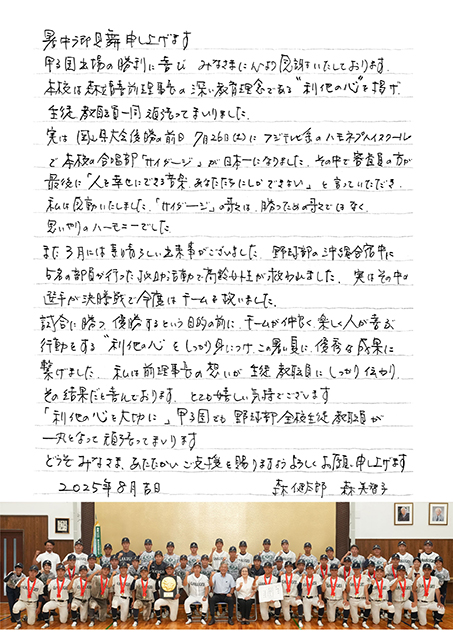 暑中御見舞申し上げます
甲子園出場の勝利に喜び みなさまに心より感謝をいたしております。
本校は森 前理事長の深い教育理念である"利他の心"を掲げ
生徒 教職員一同 頑張ってまいりました。
実は 岡山県大会優勝の前日 7月26日(土)に フジテレビ系のハモネプハイスクール
で 本校の合唱部「サイダージ」が日本一になりました。その中で審査員の方が
最後に「人を幸せにできる音楽 あなたたちにしかできない」と言っていただき、
私は感動いたしました。「サイダージ」の歌は 勝つための歌ではなく
思いやりのハーモニーでした
また3月には素晴らしい出来事がございました。野球部の沖縄合宿中に
5名の部員が行った救助活動で高齢女性が救われました。実はその中の
選手が決勝戦で今度はチームを救いました。
試合に勝つ 優勝するという目的の前に チームが仲良く 楽しく 人が喜ぶ
行動をする"利他の心"をしっかり身につけ この夏 に、優秀な成果に
繋げました。私は前理事長の想いが 生徒 教職員に しっかり伝わり、
その結果だと喜んでおります。とても嬉しい気持でございます
「利他の心を大切に」甲子園でも 野球部 全校生徒 教職員が
一丸となって頑張ってまいります
どうぞみなさま、あたたかいご支援を賜りますようよろしくお願い申し上げます
2025年8月吉日 森健太郎 森美智子